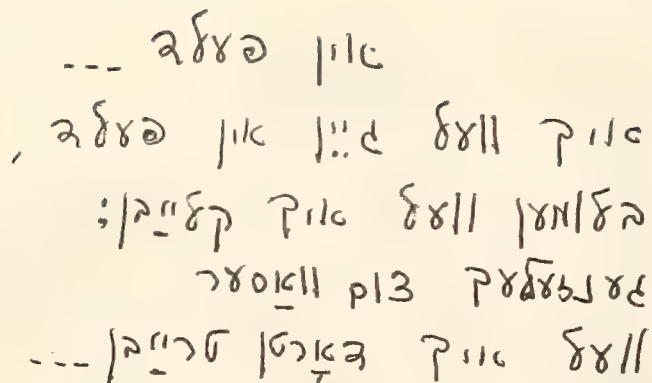 אין פעלד ---
איך וועל גײן אין פעלד,
בלומען וועל איך קלײַבן;
גענדזעלעך צום וואַסער
וועל איך דאָרטן טרײַבן ---